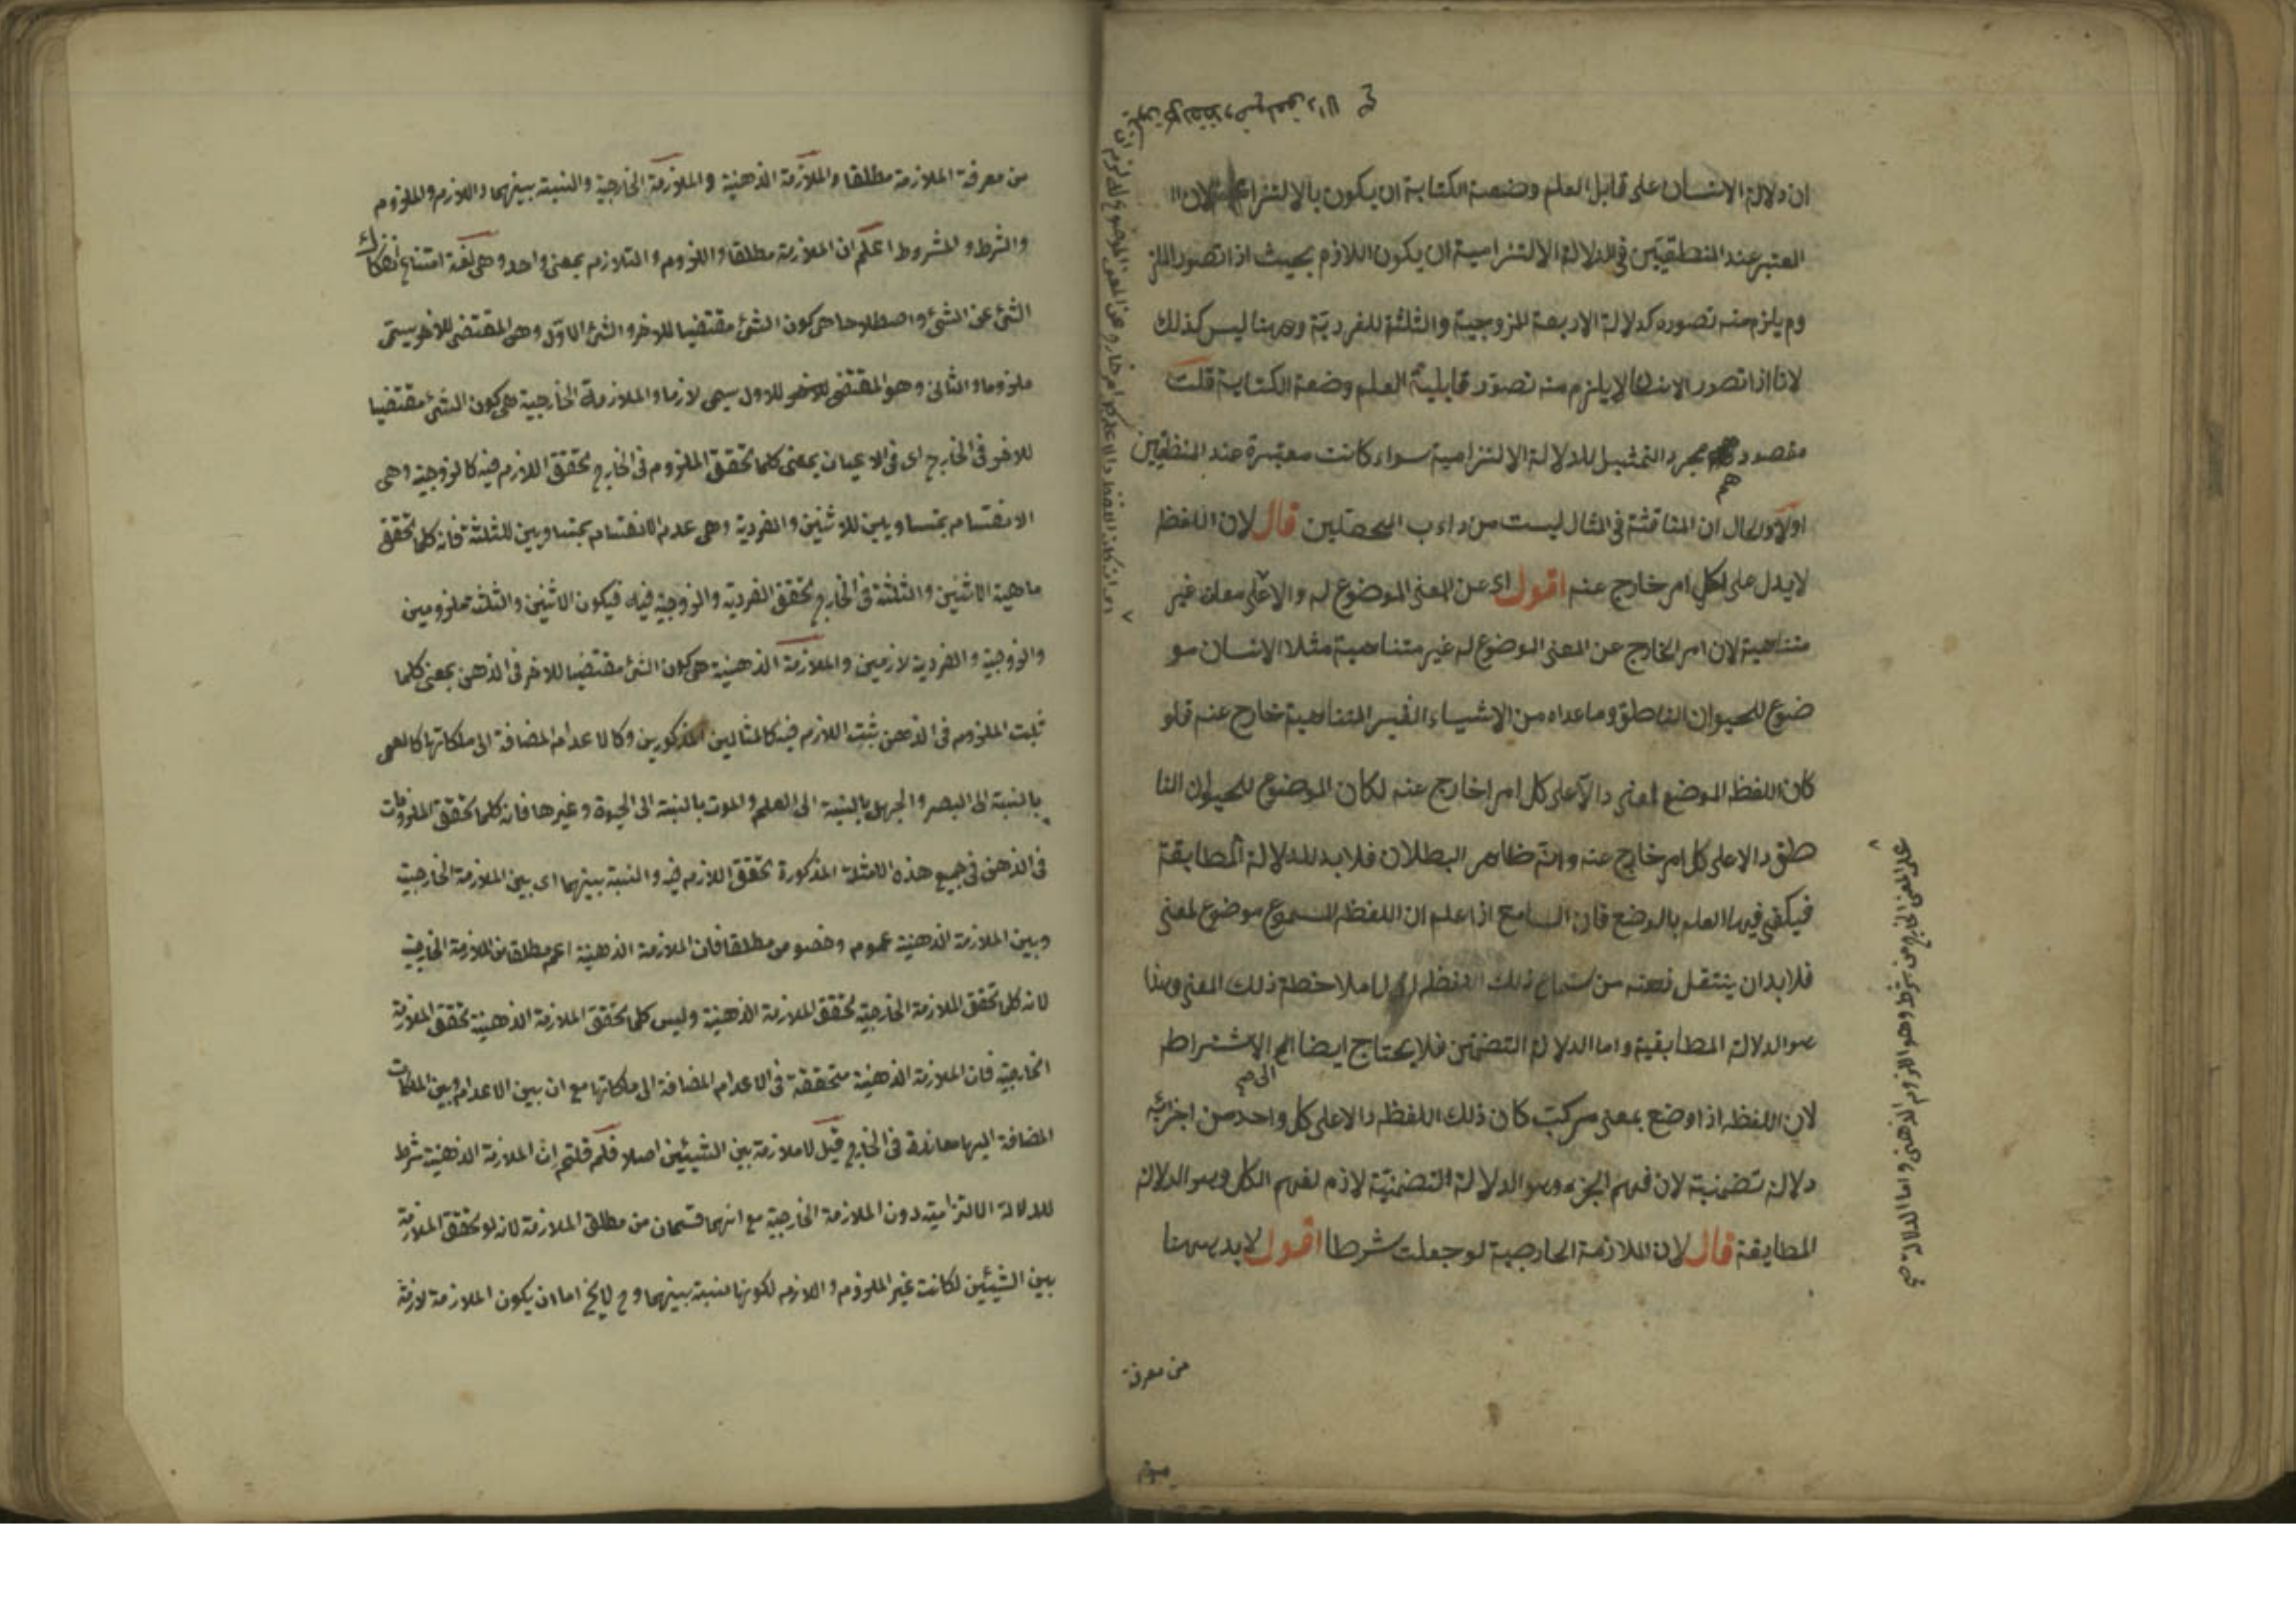 ان دلالة الانسان على قابل العلم وصنعة الكتابة ان يكون بالالتزام لان
المعتبر عند المنطقيين فى الدلالة الالتزامية ان يكون اللازم بحيث اذا تصور الملز
وم يلزم منه تصوره كدلالة الاربعة للزوجية والثلثة للفردية وههنا ليس كذلك
لانا اذا تصور الانسان لا يلزم منه تصور قابلية العلم وصنعة الكتابة قلت
مقصوده مجرد التمثيل للدلالة الالتزامية سواء كانت معتبرة عند المنطقيين
اولا ان المناقشة فى المثال ليست من داءب المحصلين قال لان اللفظ
لا يدل على كل امر خارج عنه اقول اى عن المعنى الموضوع له والا على معان غير
متناهية لان امر الخارج عن المعنى الموضوع له غير متناهية مثلا الانسان مو
ضوع للحيوان الناطق وما عداه من الاشياء الغير المتناهية خارج عنه فلو
كان اللفظ الموضع لمعنى دالا على كل امر خارج عنه لكان الموضوع للحيوان النا
طق دالا على كل امر خارج عنه وانه ظاهر البطلان فلا بد للدلالة المطابقة
فيكفى فيها العلم بالوضع فان السامع اذا علم ان اللفظ المسموع موضوع لمعنى
فلا بد ان ينتقل ذهنه من سماع ذلك اللفظ الى ملاحظة ذلك المعنى وهذا
هو الدلالة المطابقية واما الدلالة التضمنى فلا يحتاج ايضا الى الاشتراط
لان اللفظ اذا وضع بمعنى مركب كان ذلك اللفظ دالا على كل واحد من اجزائه
دلالة تضمنية لان فهم الجزء وهو الدلالة التضمنية لازم لفهم الكل وهو الدلالة
المطابقة قال لان الملازمة الخارجية لو جعلت شرطا اقول لا بد ههنا
من معرفة
على المعنى الخارجى شرط وهو اللزوم الذهنى واما الدلالة صح
من معرفة الملازمة مطلقا والملازمة الذهنية والملازمة الخارجية والنسبة بينهما واللازم والملزوم
والشرط والمشروط اعلم ان الملازمة مطلقا واللزوم والتلازم بمعنى واحد وهى لغة امتناع انفكاك
الشئ عن الشئ واصطلاحا هى كون الشئ مقتضيا للاخر والشئ الاول وهى المقتضى للاخر يسمى
ملزوما والثانى وهو المقتضى للاول سيمى لازما والملازمة الخارجية هى كون الشئ مقتضيا
للاخر فى الخارج اى فى الاعيان بمعنى كلما تحقق الملزوم فى الخارج تحقق اللازم فيه كالزوجية وهى
الانقسام بمتساويين للاثنين والفردية وهى عدم الانقسام بمتساويين للثلثة فانه كلما تحقق
ماهية الاثنين والثلثة فى الخارج تحقق الفردية والزوجية فيه فيكون الاثنين والثلثة ملزومين
والزوجية والفردية لازمين والملازمة الذهنية هى كون الشئ مقتضيا للاخر فى الذهن بمعنى كلما
ثبت الملزوم فى الذهن ثبت اللازم فيه كالمثالين المذكورين وكالاعدام المضافة الى ملكاتها كالعمى
بالنسبة الى البصر والجهل بالنسبة الى العلم والموت بالنسبة الى الحيوة وغيرها فانه كلما تحقق الملزومات
فى الذهن فى جميع هذه الامثلة المذكورة تحقق اللازم فيه والنسبة بينهما اى بين الملازمة الخارجية
وبين الملازمة الذهنية عموم وخصوص مطلقا فان الملازمة الذهنية اعم مطلقا من الملازمة الخارجية
لانه كلما تحقق الملازمة الخارجية تحقق الملازمة الذهنية وليس كلما تحقق الملازمة الذهنية تحقق الملازمة
الخارجية فان الملازمة الذهنية متحققة فى الاعدام المضافة الى ملكاتها مع ان بين الاعدام وبين الملكات
المضافة اليها معاندة فى الخارج قيل لا ملازمة بين الشيئين اصلا فلم قلتم ان الملازمة الذهنية شرط
للدلالة الالتزامية دون الملازمة الخارجية مع انهما قسمان من مطلق الملازمة لانه لو تحقق الملازمة
بين الشيئين لكانت غير الملزوم واللازم لكونها نسبة بينهما وح لا يخ اما ان يكون الملازمة لازمة